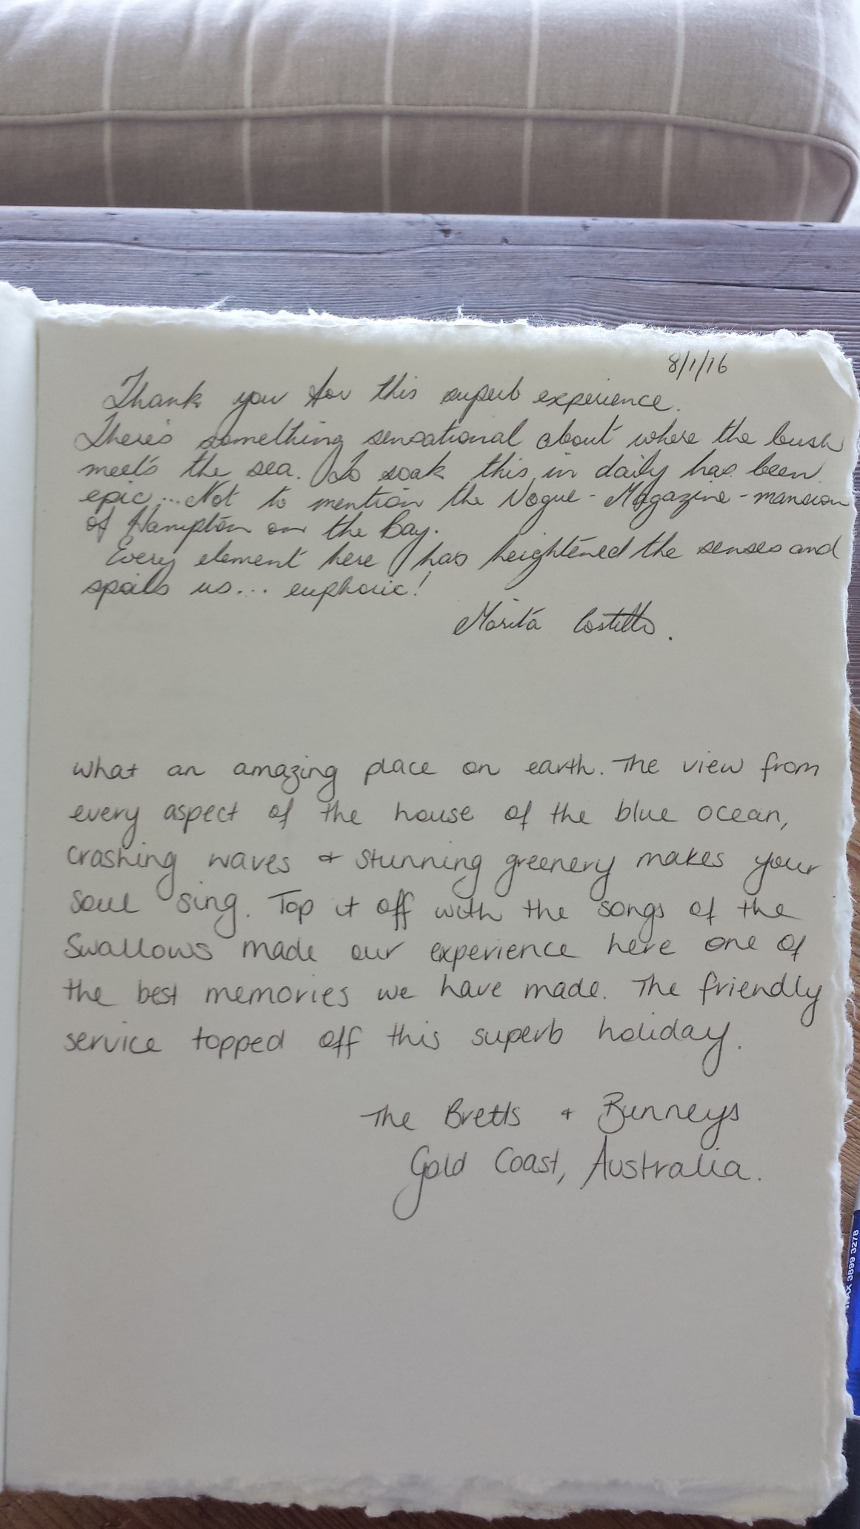 8/1/16
Thank you for this superb experience.
There's something sensational about where the bush
meets the sea. To soak this in daily has been
epic... Not to mention the Vogue-Magazine-mansion
of Hampton on the Bay.
Every element here has heightened the senses and
spoils us... euphoric!
Marita Costello.
What an amazing place on earth. The view from
every aspect of the house of the blue ocean,
crashing waves & stunning greenery makes your
soul sing. Top it off with the songs of the
swallows made our experience here one of
the best memories we have made. The friendly
service topped off this superb holiday.
The Bretts & Bunneys
Gold Coast, Australia.
3899 3278